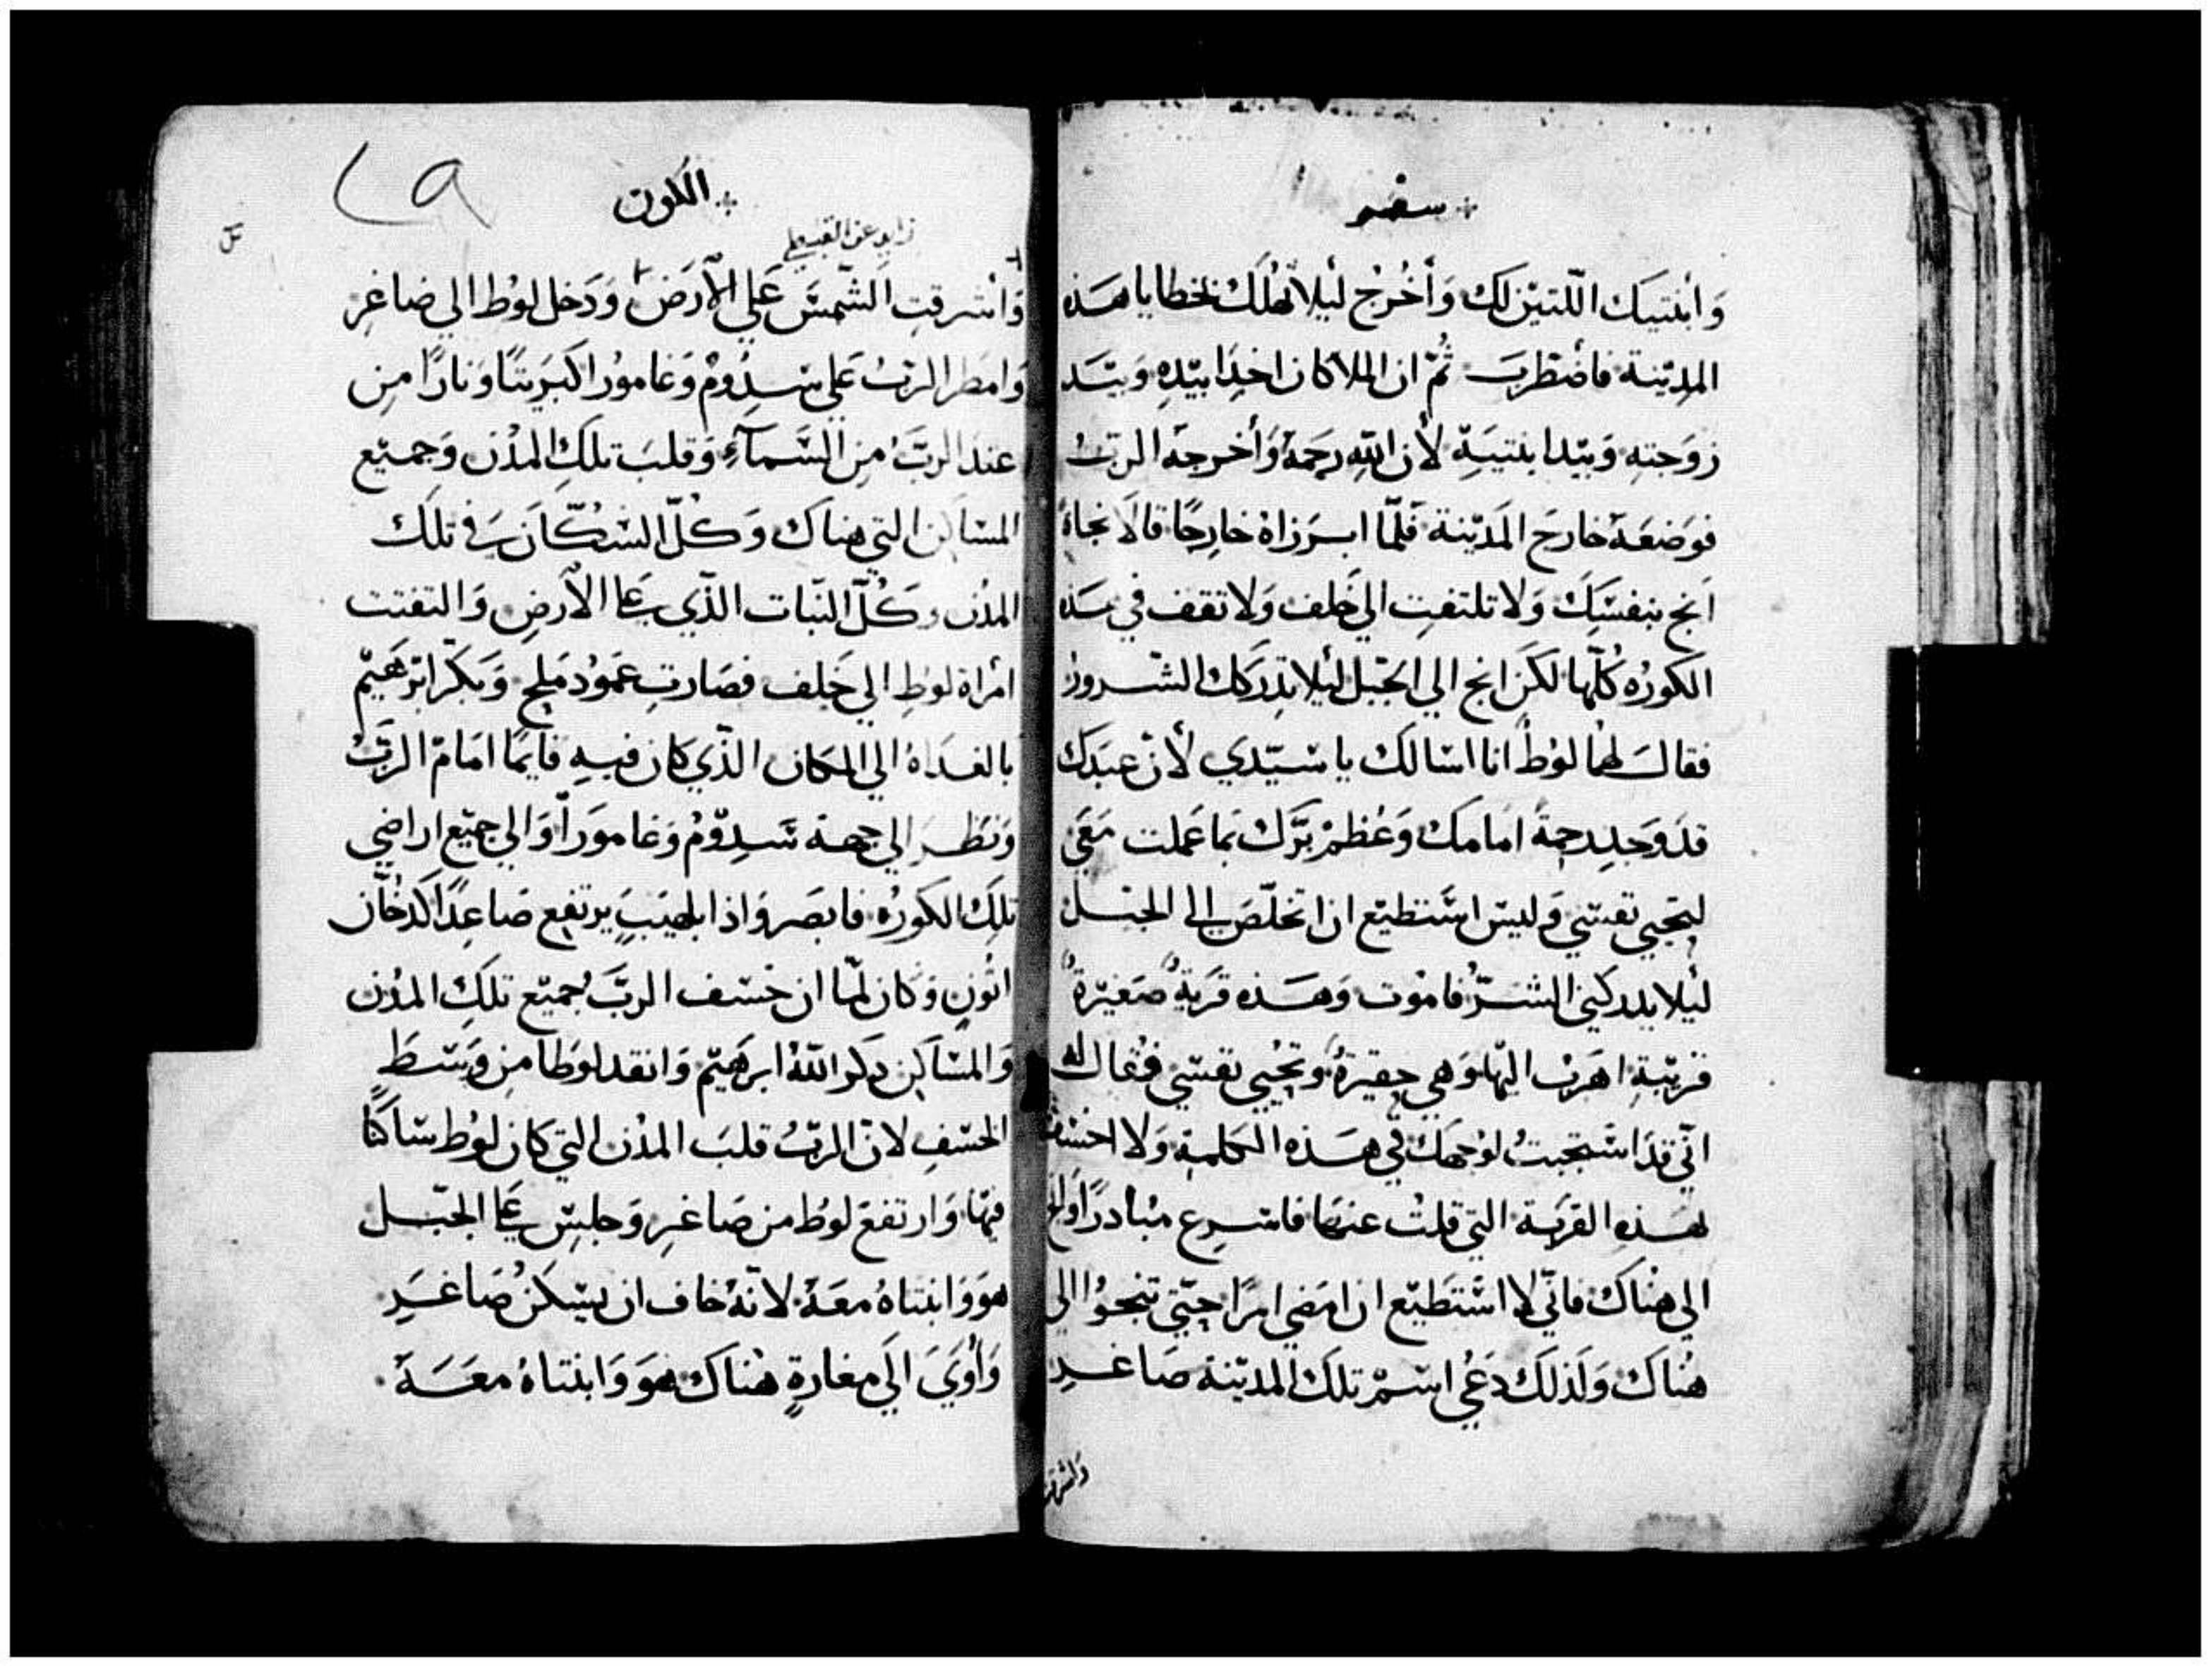 سفر
وَابنتيك اللّتين لك وَأخُرجُ لئلا تهلك بخطايا هَذه
المدِيَنة فاضطربَ ثُمّ ان الملاكان اخذا بيَدِهِ وَبيَد
زوَجتهِ وَبيَد ابنتيَهِ لأن الله رحمَهُ وَأخرجهُ الربّ
فوَضعَهُ خارجَ المَديَنة فلّما ابرزاهُ خارجًا قالا نجاهً
انج بنفسَكَ وَلا تلتفت الي خَلف وَلا تقف في هَذه
الكورُه كُلّها لكَن انج الي الجَبل لئلا تدركك الشرور
فقالَ لهُما لوُط انا اسَالك يا سَيّدي لأن عبَدك
قدَ وَجَد رحمةً امَامك وَعُظمْ بَرّك بما عَملت مَعَي
لتحيي نفسَي وَليسَ اسَتطيَع ان اتخلّصَ الي الجبَل
لئلا يدركني الشرّ فاموُت وَهَذه قرَيةُ صَغيرَة
قريَبة اهَربُ اليَها وَهي حقيرَةُ وَتحيي نفسَي فقال لهُ
انّي قدَ اسَتجبتُ لوَجهَك في هَذه الكلمة وَلا اخسفُ
بهذهِ القريَة التي قلتُ عنهَا فاسَرع مُبادرًا وَانج
الي هُناك فانّي لا اسَتطَيَع ان امَضي امرًا حتّي تنجوُا الي
هُناك وَلَذلك دَعُي اسَمْ تلك المديَنة صَاغَرِ
وَاشرقت
٢٩
الكون
زايد عن القبطي
وَاشرقتِ الشّمسَ عَلي الأرَض وَدَخل لوُط الي صاغرِ
وَامطَر الربّ عَلي سَدِوُمْ وَغاموُرا كبريتًا وَنارًا مِن
عندَ الربَّ من السّمآءِ وَقلبَ تلكِ المدُن وَجميَع
المسَاكن التي هناك وَكُلّ السُكّانَ في تلَك
المدُن وَكُلّ النبَات الذّي عَلي الأرضِ وَالتفتت
امَرأة لوُطِ الي خَلف فصَارتِ عَموُد مَلح وَبكّر ابرَهَيمْ
بالغدَاهُ الي المَكان الذّي كان فيهِ قآيمًا امَامَ الربّ
وَنظَر الي جهة سَدِوُمُ وَغاموَرا وَالي جميَع اراضي
تلك الكورُه فابصَر وَاذا بلهيَبٍ يرتفِع صَاعِدًا كَدخُان
اتوُنٍ وَكان لمّا ان خسَف الربَّ جميَع تلكِ المدُن
وَالمسَاكِن ذكر اللهُ ابرهَيمْ وَانقد لوُطَا من وَسَط
الخسَفِ لانّ الربّ قلبَ المدُن التي كان لوُط سَاكنًا
فيَها وَارتفعَ لوُط من صَاغرِ وَجلسَ عَلي الجبَل
هوَ وَابنتاهُ معَهُ لانّهُ خاف ان يسَكنُ صَاغَرِ
وَأوَيَ الَي مغارةٍ هُناك هوَ وَابنتاهُ معَهُ